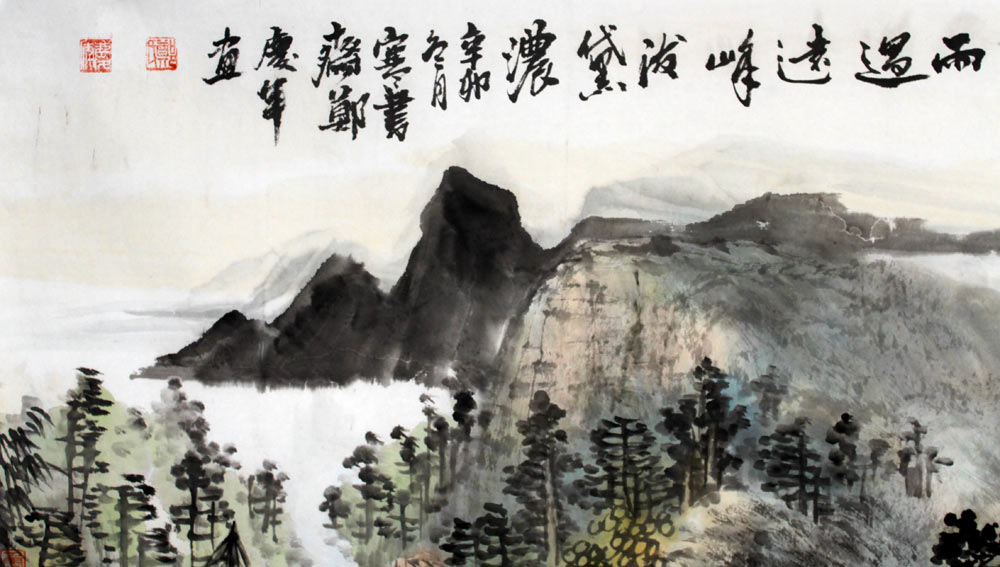 雨過遠峰泼黛濃
辛卯
冬月
寒書
齋鄭
慶年
畫